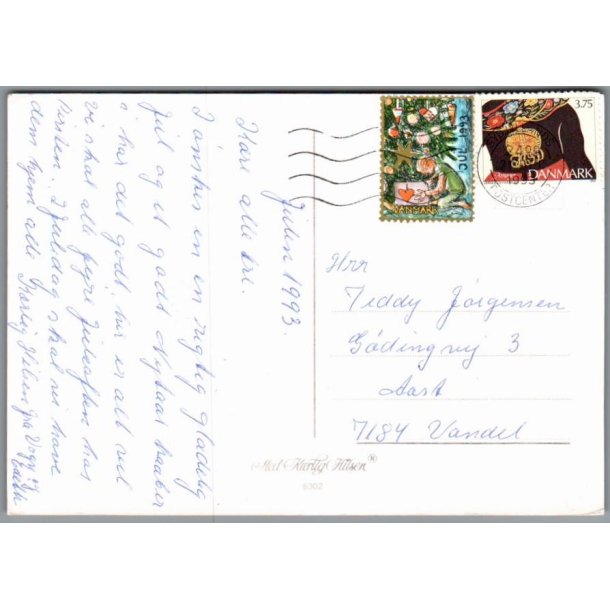 Julen 1993.
Kære alle tre.
I ønskes en rigtig glædelig
Jul og et godt Nytaar haaber
i har det godt, her er alt vel
vi skal alle fyre Juleaften hos
Kirsten. 2 Juledag skal vi have
dem hjem alle. Kærlig Hilsen fra Vagn og
Edith
JUL 1993
DANMARK
3.75
DANMARK
1993
POSTCENTER
Hrr
Teddy Jörgensen
Gödingvej 3
Aast
7184 Vandel
Med Kærlig Hilsen®
6302